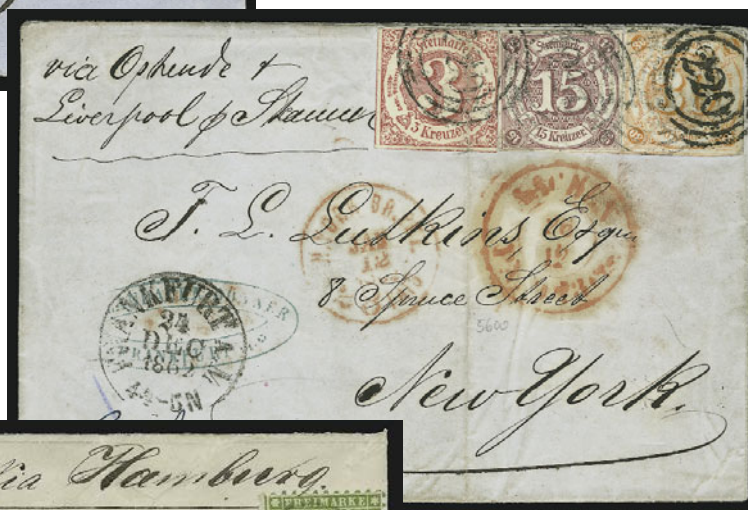 via Ostende &
Liverpool p Steamer
Freimarke
3
3 Kreuzer
Freimarke
15
15 Kreuzer
220
T. L. Lutkins Esqr
8 Spruce Street
5600
New York.
FRANKFURT A. M.
24
DEC
1862
4-5N
12
12
via Hamburg
FREIMARKE